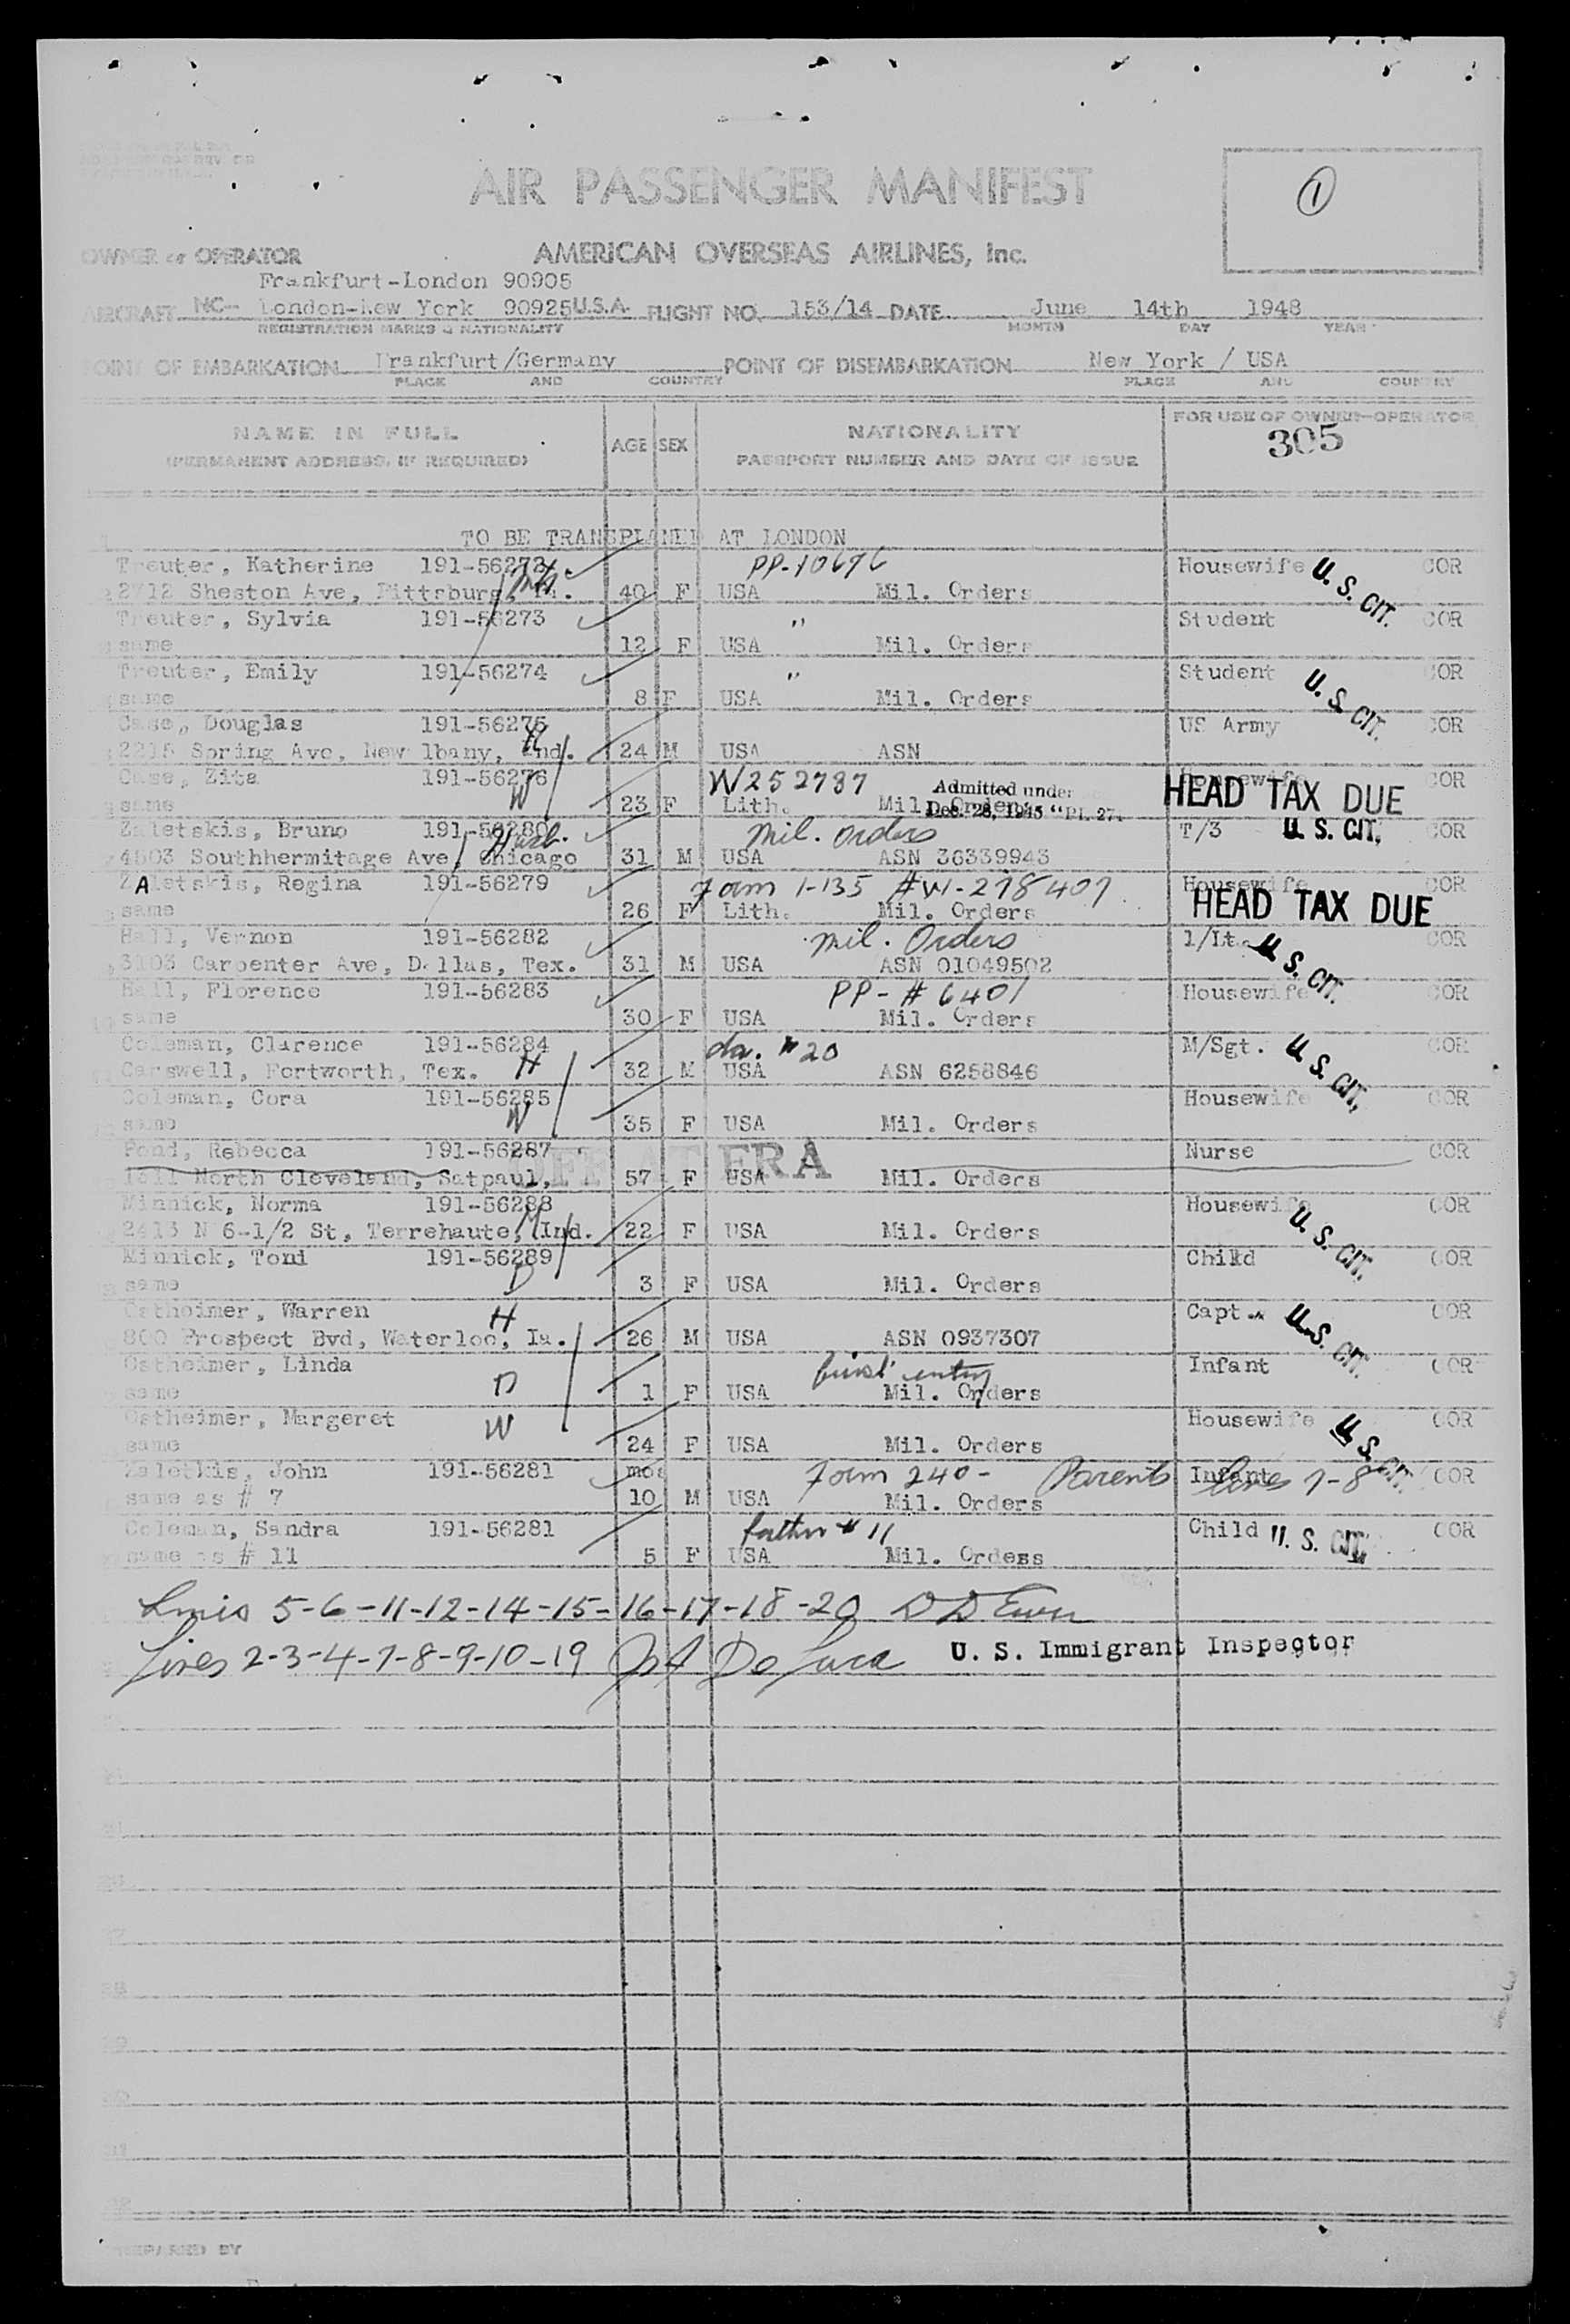 AIR PASSENGER MANIFEST
1
OWNER or OPERATOR AMERICAN OVERSEAS AIRLINES, Inc.
Frankfurt-London 90905
AIRCRAFT NC- London-New York 90925 U.S.A. FLIGHT NO. 153/14 DATE June 14th 1948
REGISTRATION MARKS & NATIONALITY MONTH DAY YEAR
POINT OF EMBARKATION Frankfurt/Germany POINT OF DISEMBARKATION New York / USA
PLACE AND COUNTRY PLACE AND COUNTRY
NAME IN FULL AGE SEX NATIONALITY FOR USE OF OWNER-OPERATOR
(PERMANENT ADDRESS, IF REQUIRED) PASSPORT NUMBER AND DATE OF ISSUE 305
TO BE TRANSPLANED AT LONDON
Treuter, Katherine 191-56272 PP-10676 Housewife U. S. CIT. COR
2712 Sheston Ave, Pittsburg, Pa. 40 F USA Mil. Orders
Treuter, Sylvia 191-56273 " Student COR
same 12 F USA Mil. Orders
Treuter, Emily 191-56274 " Student U. S. CIT. COR
same 8 F USA Mil. Orders
Case, Douglas 191-56275 US Army COR
2215 Spring Ave, New lbany, Ind. H 24 M USA ASN
Case, Zita 191-56276 W252787 Admitted under Housewife COR
same W 23 F Lith. Mil. Orders Dec. 28, 1945 "PL 271 HEAD TAX DUE
Zaletskis, Bruno 191-56280 Mil. orders T/3 U. S. CIT. COR
4503 Southhermitage Ave, Chicago 31 M USA ASN 36339943
ZAletskis, Regina 191-56279 Form 1-135 #W-278407 Housewife COR
same 26 F Lith. Mil. Orders HEAD TAX DUE
Hall, Vernon 191-56282 Mil. Orders 1/Lt. U. S. CIT. COR
3103 Carpenter Ave, Dallas, Tex. 31 M USA ASN 01049502
Hall, Florence 191-56283 PP-#6401 Housewife COR
same 30 F USA Mil. Orders
Coleman, Clarence 191-56284 #20 M/Sgt. U. S. CIT. COR
Carswell, Fortworth, Tex. H 32 M USA ASN 6258846
Coleman, Cora 191-56285 Housewife COR
same W 35 F USA Mil. Orders
Pond, Rebecca 191-56287 OFF AT FRA Nurse COR
1611 North Cleveland, Satpaul, 57 F USA Mil. Orders
Minnick, Norma 191-56288 Housewife U. S. CIT. COR
2413 N 6-1/2 St, Terrehaute, Ind. M 22 F USA Mil. Orders
Minnick, Toni 191-56289 Child COR
same D 3 F USA Mil. Orders
Ostheimer, Warren H Capt. U. S. CIT. COR
800 Prospect Bvd, Waterloo, Ia. 26 M USA ASN 0937307
Ostheimer, Linda first entry Infant COR
same D 1 F USA Mil. Orders
Ostheimer, Margeret W Housewife U. S. CIT. COR
same 24 F USA Mil. Orders
Zaletkis, John 191-56281 mos Form 240 - Parents Infant lines 7-8 COR
same as # 7 10 M USA Mil. Orders
Coleman, Sandra 191-56281 father # 11 Child U. S. CIT. COR
same as # 11 5 F USA Mil. Ordess
Lines 5-6-11-12-14-15-16-17-18-20
Lines 2-3-4-7-8-9-10-19 De Luca U. S. Immigrant Inspector
PREPARED BY